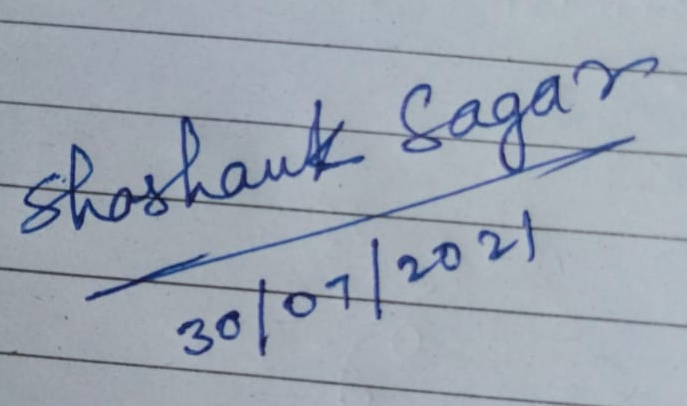 Shashank Sagar
30/07/2021